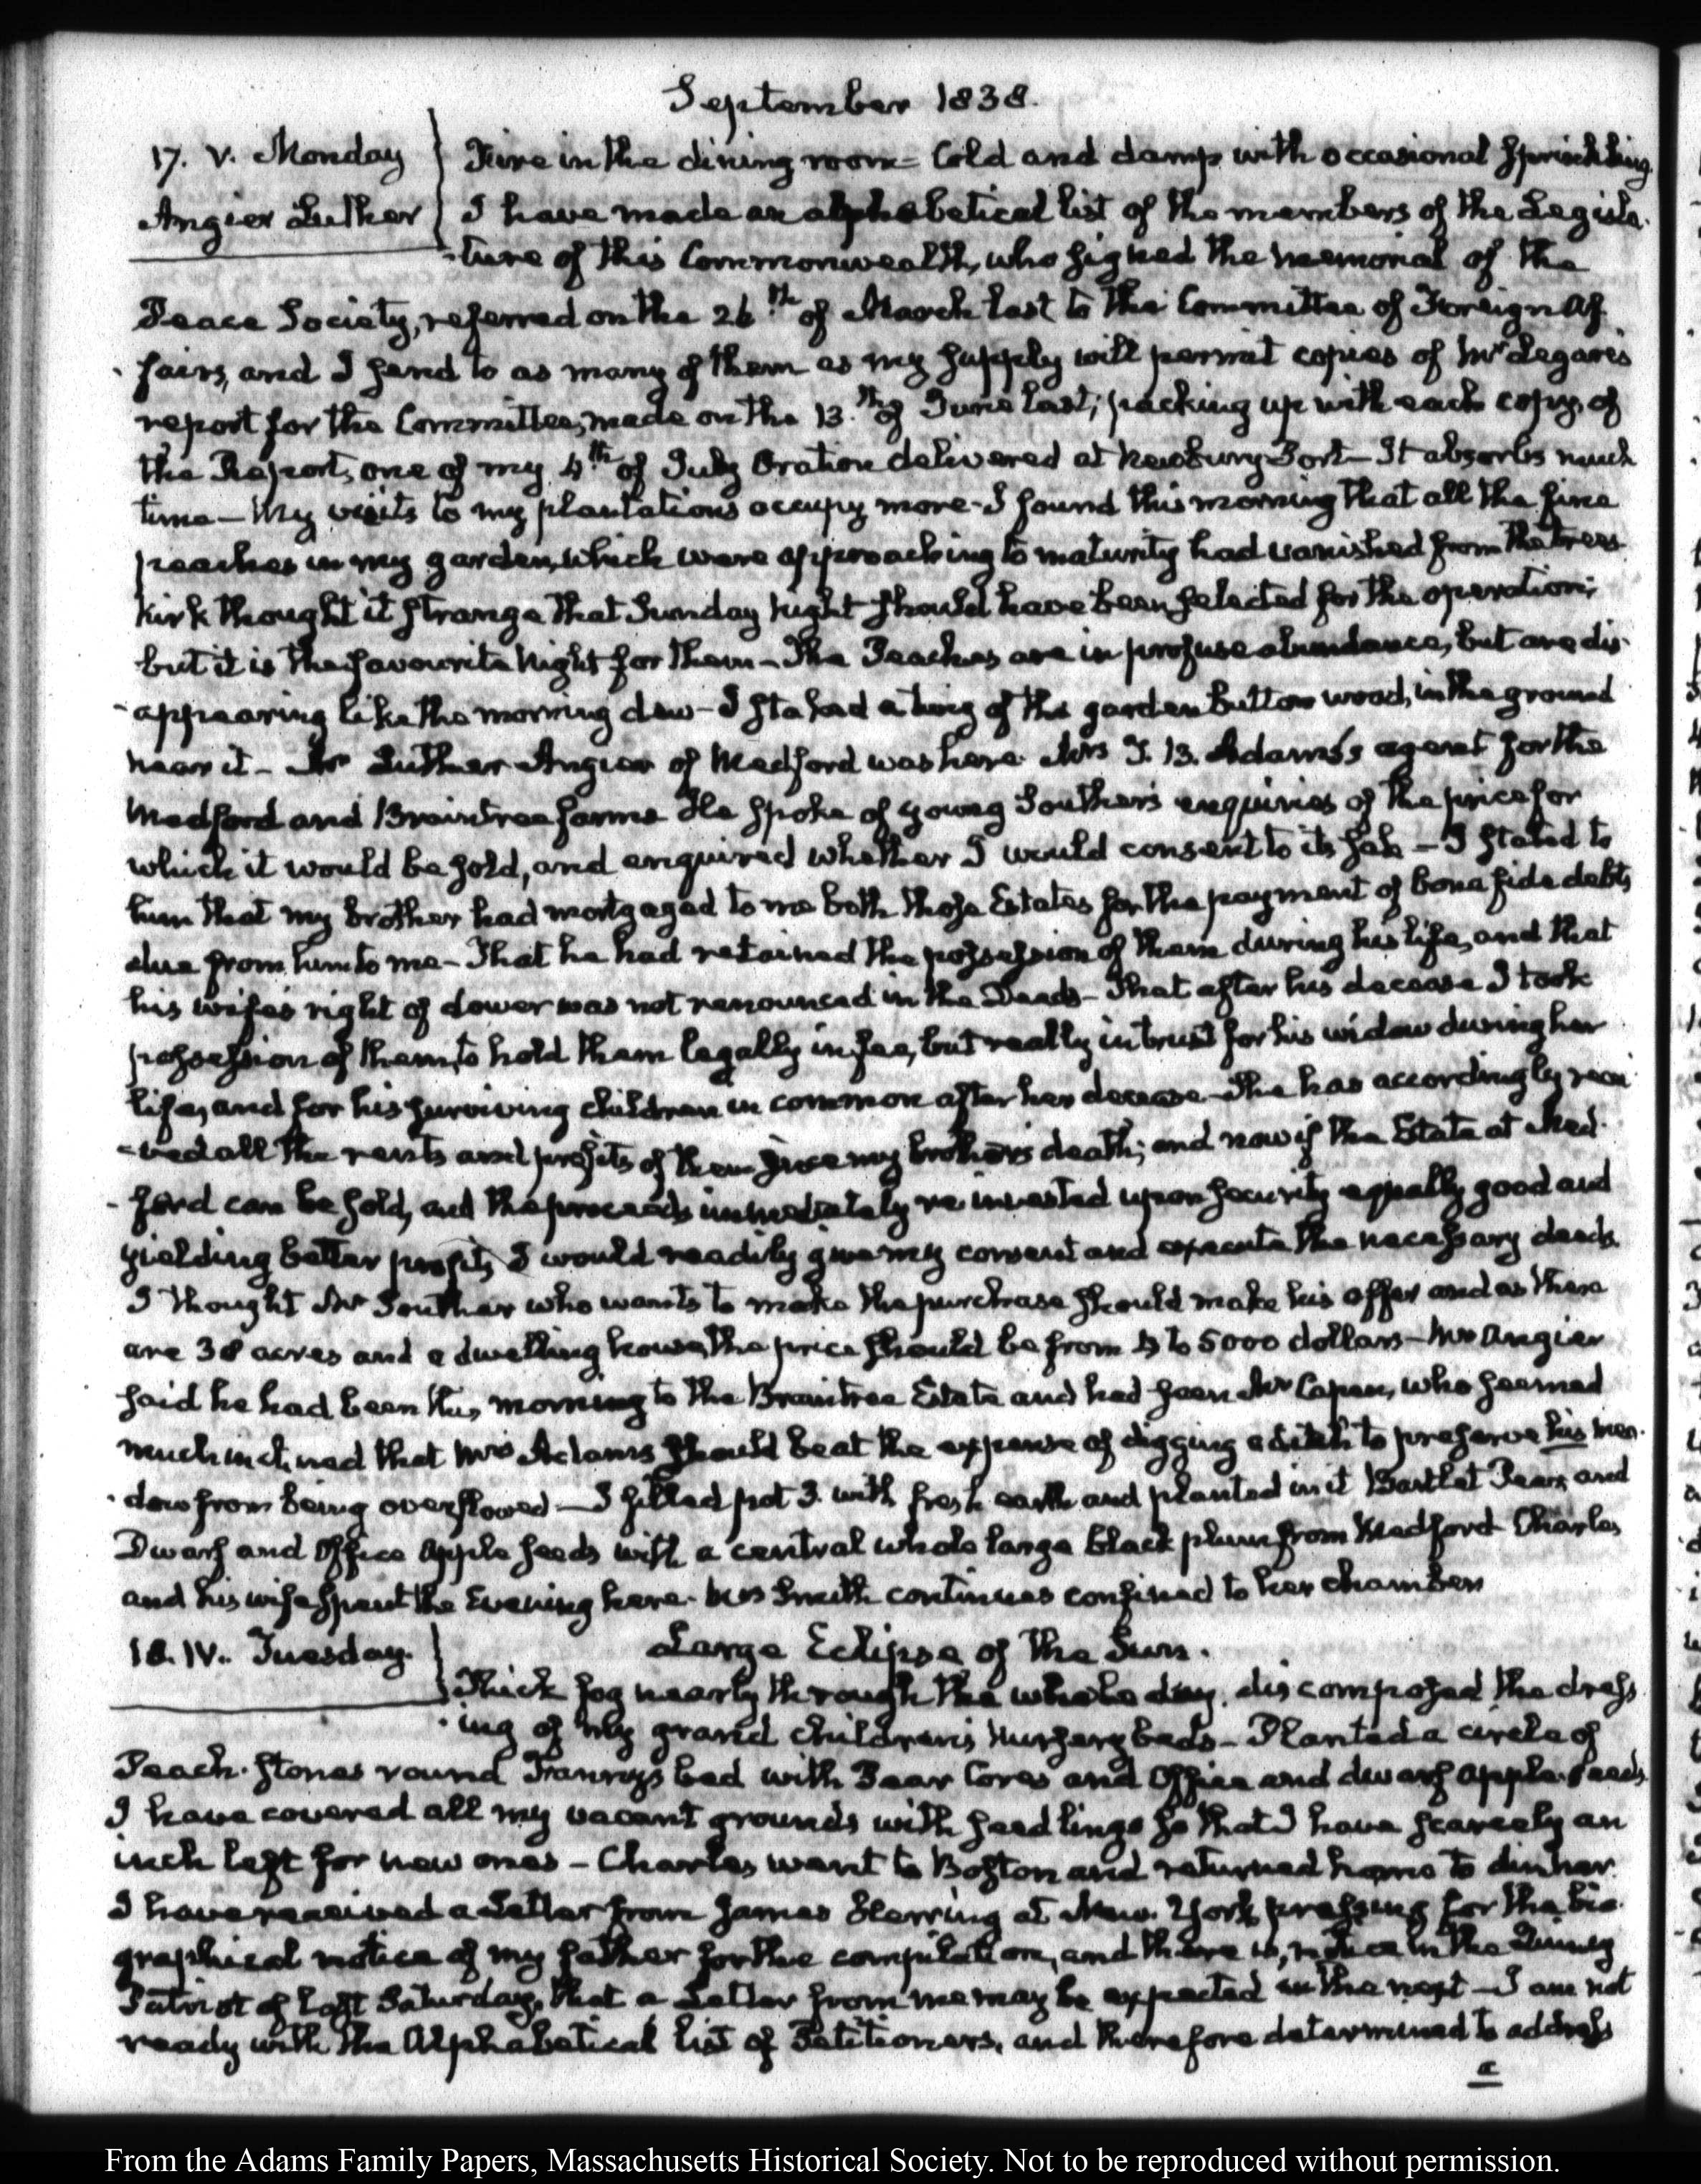 September 1838.
17. V. Monday Fire in the dining room - Cold and damp with occasional sprinkling
Angier Luther I have made an alphabetical list of the members of the Legisla-
-ture of this Commonwealth, who signed the memorial of the
Peace Society, referred on the 26th of March last to the Committee of Foreign Af-
-fairs, and I send to as many of them as my supply will permit copies of Mr Legare's
report for the Committee, made on the 13.th of June last; packing up with each copy of
the Report, one of my 4th of July Oration delivered at Newbury Port - It absorbs much
time - My visits to my plantations occupy more - I found this morning that all the fine
peaches in my garden, which were approaching to maturity had vanished from the trees.
Kirk thought it strange that Sunday Night should have been selected for the operation;
but it is the favourite Night for them - The Peaches are in profuse abundance, but are dis-
-appearing like the morning dew - I staked a twig of the garden button wood, in the ground
near it - Mr Luther Angier of Medford was here Mrs T. B. Adams's agent for the
Medford and Braintree farms He spoke of young Souther's enquiries of the price for
which it would be sold, and enquired whether I would consent to its sale - I stated to
him that my brother had mortgaged to me both those Estates for the payment of bona fide debts
due from him to me - That he had retained the possession of them during his life, and that
his wife's right of dower was not renounced in the Deeds - That after his decease I took
possession of them, to hold them legally in fee, but really in trust for his widow during her
life, and for his surviving children in common after her decease - She has accordingly recei-
-ved all the rents and profits of them since my brother's death; and now if the Estate at Med-
-ford can be sold, and the proceeds immediately re invested upon security equally good and
yielding better profit, I would readily give my consent and execute the necessary deeds.
I thought Mr Souther who wants to make the purchase should make his offer and as there
are 38 acres and a dwelling house, the price should be from 4 to 5000 dollars - Mr Angier
said he had been this morning to the Braintree Estate and had seen Mr Capen, who seemed
much inclined that Mrs Adams should be at the expense of digging a ditch to preserve his mea-
-dow from being overflowed - I filled pot 3. with fresh earth and planted in it Bartlet Pear, and
Dwarf and Office Apple seeds with a central whole large black plum from Medford Charles
and his wife spent the Evening here. Mrs Smith continues confined to her chamber
18. IV. Tuesday. Large Eclipse of the Sun.
Thick fog nearly through the whole day, discomposed the dress-
-ing of my grand children's Nursery beds - Planted a circle of
Peach-stones round Fanny's bed with Pear Cores and Office and dwarf apple-seeds
I have covered all my vacant grounds with seedlings so that I have scarcely an
inch left for new ones - Charles went to Boston and returned home to dinner.
I have received a Letter from James Herring at New-York pressing for the bio-
graphical notice of my father for the compilation, and there is, notice in the Quincy
Patriot of last Saturday, that a Letter from me may be expected in the next - I am not
ready with the Alphabetical list of Petitioners, and therefore determined to address
a
From the Adams Family Papers, Massachusetts Historical Society. Not to be reproduced without permission.